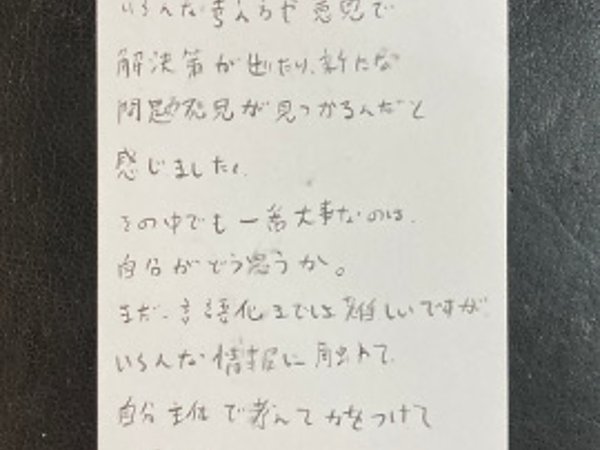 いろんな考えや意見で
解決策が出たり、新たな
問題発見が見つかるんだと
感じました。
その中でも一番大事なのは、
自分がどう思うか。
まだ、言語化までは難しいですが
いろんな情報に触れて、
自分主体で考えて力をつけて